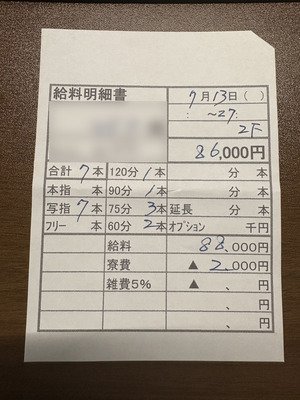 給料明細書
9月13日( )
: ～27:
2F
86,000円
合計 7本 120分 1本 分 本
本指 本 90分 1本 分 本
写指 7本 75分 3本 延長 分 本
フリー 本 60分 2本 オプション 千円
給料 88,000円
寮費 ▲ 2,000円
雑費5% ▲ 、 円
、 円
、 円